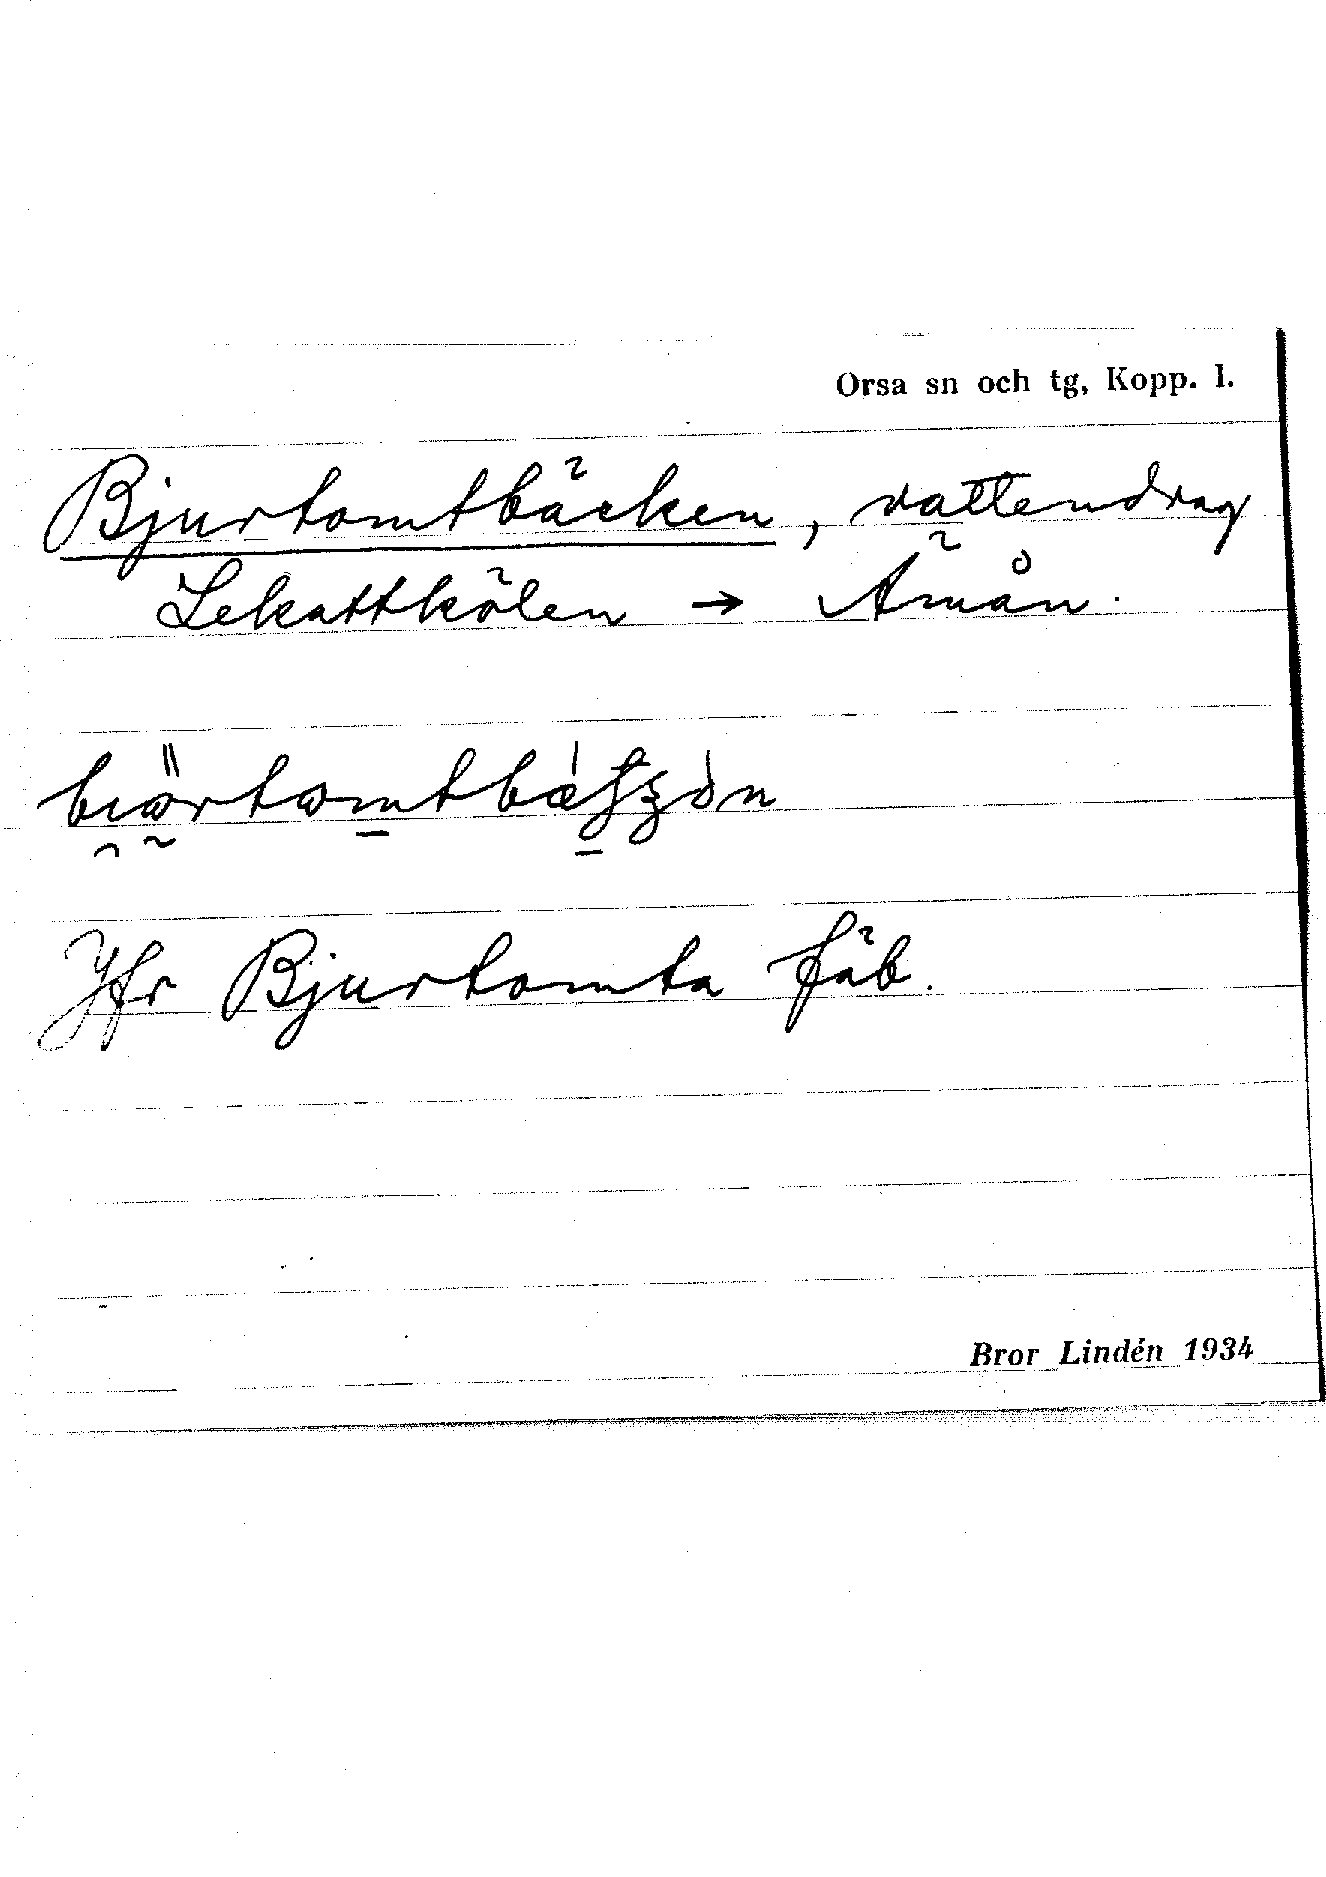 Orsa sn och tg, Kopp. l.
Bjurtomtbäcken, vattendrag
Lekattkölen → Ämån.
Jfr Bjurtomta fäb.
Bror Lindén 1934